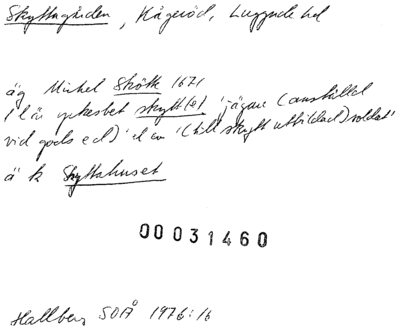 Skyttagården, Kågeröd, Luggude hd
äg Michel Skött 1671
i l är yrkesbet skytt(e) 'jägare (anställd
vid gods ed)' el av '(till skytt utbildad) soldat'
ä k Skyttahuset
00031460
Hallberg SOÅ 1976:16